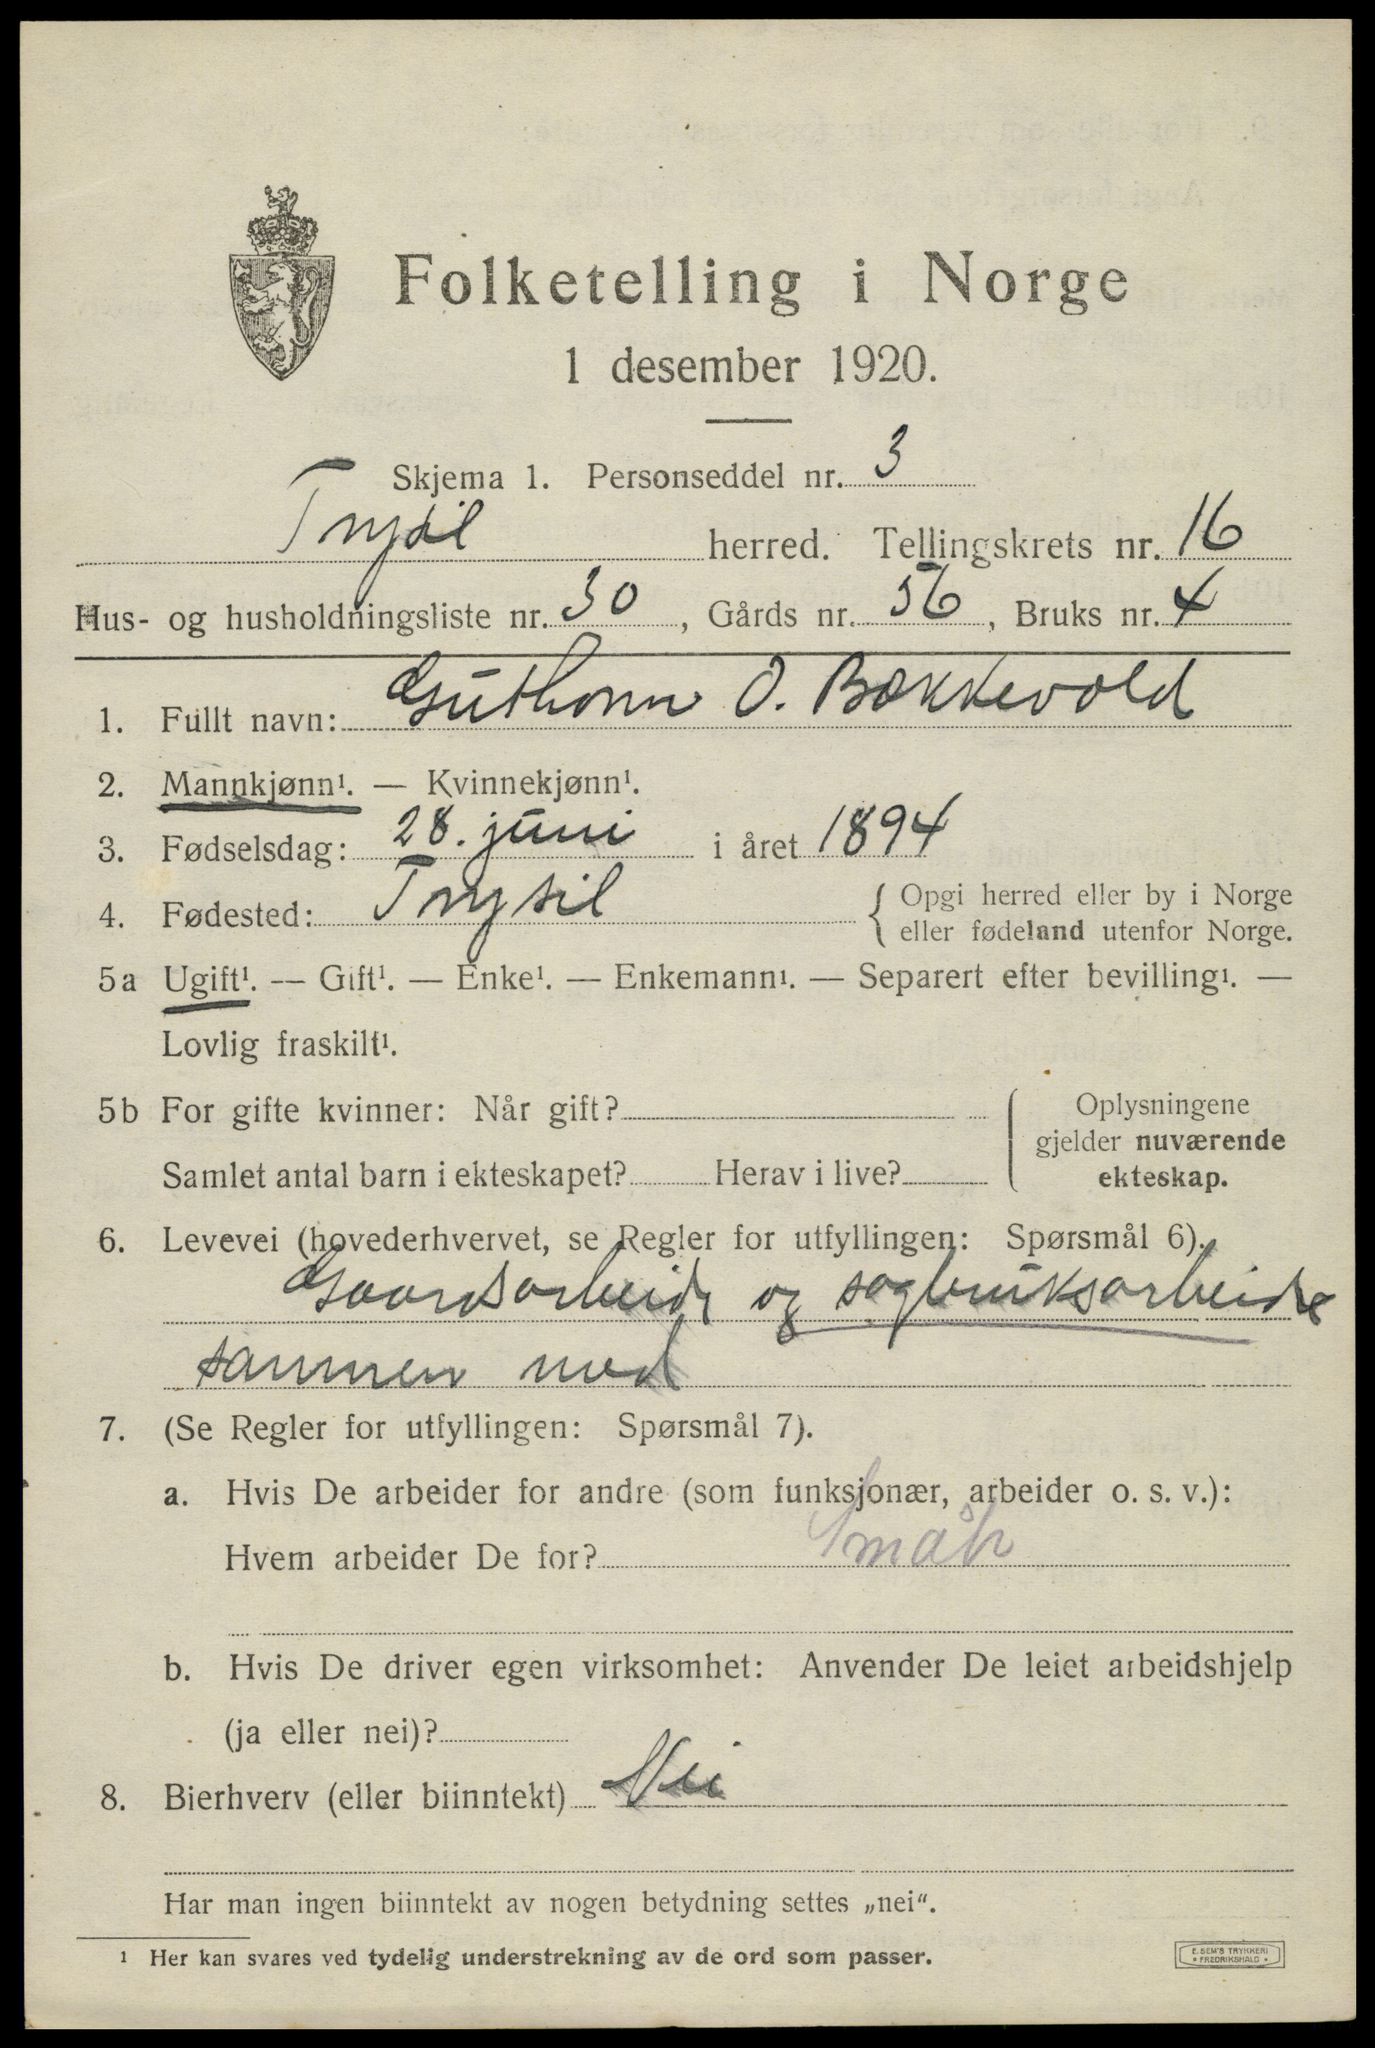 Folketelling i Norge
1 desember 1920.
Skjema 1. Personseddel nr. 3
Trysil herred. Tellingskrets nr. 16
Hus- og husholdningsliste nr. 30, Gårds nr. 56, Bruks nr. 4
1. Fullt navn: Guthorm O. Bækkevold
2. Mannkjønn¹. — Kvinnekjønn¹.
3. Fødselsdag: 28. juni i året 1894
4. Fødested: Trysil { Opgi herred eller by i Norge
eller fødeland utenfor Norge.
5a Ugift¹. — Gift¹. — Enke¹. — Enkemann¹. — Separert efter bevilling¹. —
Lovlig fraskilt¹.
5b For gifte kvinner: Når gift? { Oplysningene
gjelder nuværende
Samlet antal barn i ekteskapet? Herav i live? ekteskap.
6. Levevei (hovederhvervet, se Regler for utfyllingen: Spørsmål 6).
Gaardsarbeide og sagbruksarbeide
sammen med
7. (Se Regler for utfyllingen: Spørsmål 7).
a. Hvis De arbeider for andre (som funksjonær, arbeider o. s. v.):
Hvem arbeider De for?
b. Hvis De driver egen virksomhet: Anvender De leiet arbeidshjelp
(ja eller nei)?
8. Bierhverv (eller biinntekt) Nei
Har man ingen biinntekt av nogen betydning settes „nei“.
¹ Her kan svares ved tydelig understrekning av de ord som passer.
E. SEM'S TRYKKERI
• FREDRIKSHALD •